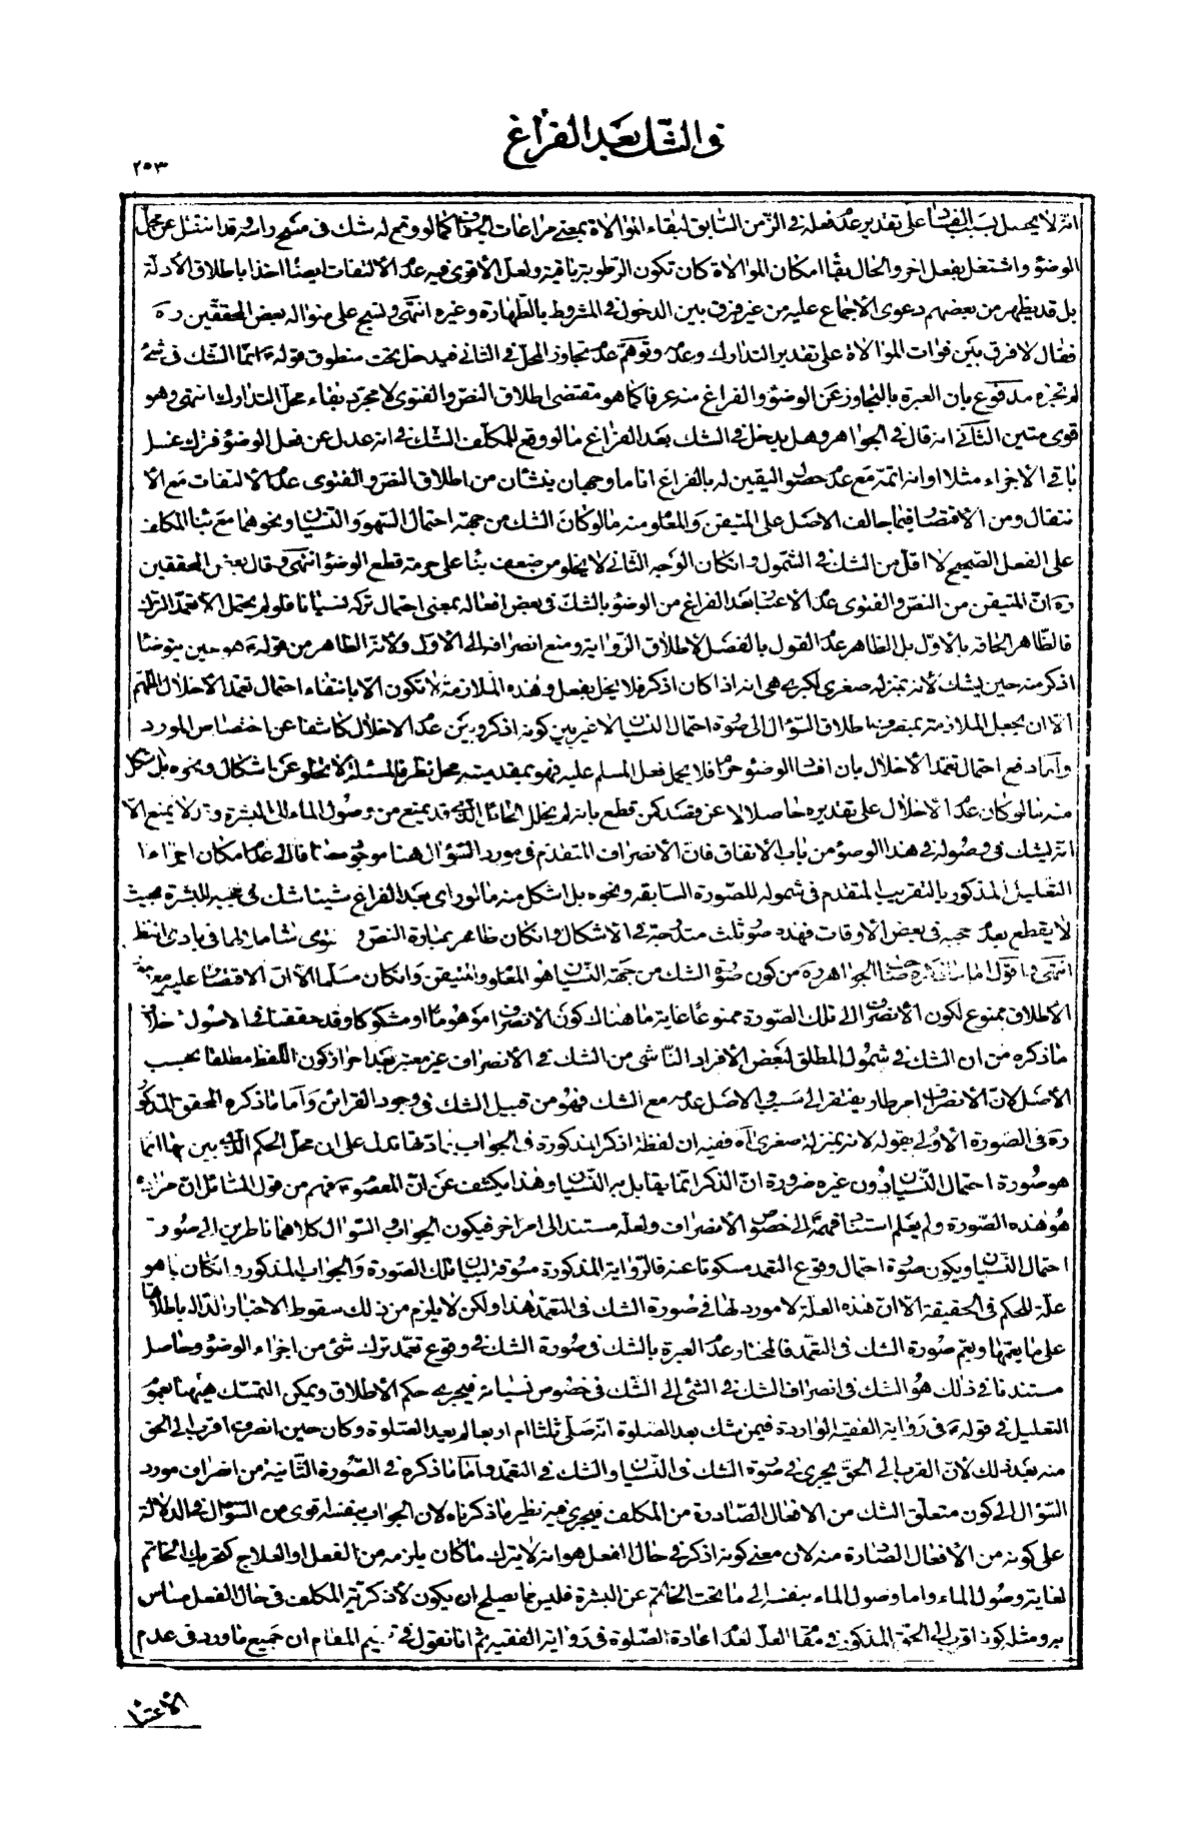 في الشك بعد الفراغ
٢٥٣
انه لا يحصل بسببه الفساد على تقدير عدم فعله في الزمن السابق لبقاء الموالاة بمعنى مراعات الجفاف كما لو وقع له شك في مسح راسه وقد انتقل عن محل
الوضوء واشتغل بفعل اخر والحال بقاء امكان الموالاة كان تكون الرطوبة باقية ولعل الأقوى فيه عدم الالتفات ايضا اخذا باطلاق الأدلة
بل قد يظهر من بعضهم دعوى الاجماع عليه من غير فرق بين الدخول في المشروط بالطهارة وغيره انتهى ونسج على منواله بعض المحققين ره
فقال لا فرق بين فوات الموالاة على تقدير التدارك وعدمه وتوهم عدم تجاوز المحل في الثاني فيدخل تحت منطوق قوله ع انما الشك في شئ
لم تجزه مدفوع بان العبرة بالتجاوز عن الوضوء والفراغ منه عرفا كما هو مقتضى اطلاق النص والفتوى لا مجرد بقاء محل التدارك انتهى وهو
قوى متين الثاني انه قال في الجواهر وهل يدخل في الشك بعد الفراغ ما لو وقع للمكلف الشك في انه عدل عن فعل الوضوء فترك غسل
باقي الاجزاء مثلا او انه اتمه مع عدم حصول اليقين له بالفراغ اناما وجهان ينشان من اطلاق النص والفتوى عدم الالتفات مع الا
نتقال ومن الاقتصار فيما خالف الاصل على المتيقن والمعلوم منه ما لو كان الشك من جهة احتمال السهو والنسيان ونحوهما مع بناء المكلف
على الفعل الصحيح لا اقل من الشك في الشمول وان كان الوجه الثاني لا يخلو من ضعف بناء على حرمة قطع الوضوء انتهى وقال بعض المحققين
ره ان المتيقن من النص والفتوى عدم الاعتبار بعد الفراغ من الوضوء بالشك في بعض افعاله بمعنى احتمال تركه نسيانا فلو لم يحتمل الا تعمد الترك
فالظاهر الحاقه بالاول بل الظاهر عدم القول بالفصل لاطلاق الرواية ومنع انصرافه الى الاول ولانه الظاهر من قوله ع هو حين يتوضأ
اذكر منه حين يشك لانه بمنزلة صغرى لكبرى هي انه اذا كان اذكر فلا يخل بفعل وهذه الملازمة لا تكون الا بانتفاء احتمال تعمد الاخلال اللهم
الا ان يجعل الملازمة بمضمونها طلاق السؤال الى صورة احتمال النسيان لا غير بين كونه اذكر وبين عدم الاخلال كاشفا عن اختصاص المورد
واما دفع احتمال تعمد الاخلال بان افساد الوضوء حرام فلا يحمل فعل المسلم عليه فهو بمقدمتيه محل نظر فالمسئلة لا تخلو عن اشكال ونحوه بل اشكل
منه ما لو كان عدم الاخلال على تقديره حاصلا لا عن قصد كمن قطع بانه لم يخلل الخاتم الذي قد يمنع من وصول الماء الى البشرة وقد لا يمنع الا
انه يشك في وصوله في هذا الوضوء من باب الاتفاق فان الانصراف المتقدم في مورد السؤال هنا موجود مضافا الى عدم امكان اجراء
التعليل المذكور بالتقريب المتقدم في شموله للصورة السابقة ونحوه بل اشكل منه ما لو راى بعد الفراغ شيئا شك في حجبه للبشرة بحيث
لا يقطع بعدم حجبه في بعض الأوقات فهذه صور ثلث متدرجة في الاشكال وان كان ظاهر عبارة النص و الفتوى شاملا لها في بادى النظر
انتهى اقول اما ما ذكره صاحب الجواهر ره من كون صورة الشك من جهة النسيان هو المعلوم والمتيقن وان كان مسلما الا ان الاقتصار عليه مع
الاطلاق ممنوع لكون الانصراف الى تلك الصورة ممنوعا غاية ما هناك كون الانصراف موهوما او مشكوكا وقد حققنا في الاصول خلاف
ما ذكره من ان الشك في شمول المطلق لبعض الأفراد الناشى من الشك في الانصراف غير معتبر بعد احراز كون اللفظ مطلقا بحسب
الأصل لان الانصراف امر طار يفتقر الى سبب والاصل عدمه مع الشك فهو من قبيل الشك في وجود القرائن واما ما ذكره المحقق المذكور
ره في الصورة الأولى بقوله لانه بمنزلة صغرى اه ففيه ان لفظة اذكر المذكورة في الجواب بمادتها تدل على ان محل الحكم الذي بين ع انما
هو صورة احتمال النسيان دون غيره ضرورة ان الذكر انما يقابل به النسيان وهذا يكشف عن ان المعصوم ع فهم من قول السائل ان مراده
هو هذه الصورة ولم يعلم استناد فهمه الى خصوص الانصراف ولعله مستند الى امر اخر فيكون الجواب والسؤال كلاهما ناظرين الى صورة
احتمال النسيان ويكون صورة احتمال وقوع التعمد مسكوتا عنه فالرواية المذكورة مسوقة لبيان تلك الصورة والجواب المذكور وان كان ما هو
علة للحكم في الحقيقة الا ان هذه العلة لا مورد لها في صورة الشك في التعمد هذا ولكن لا يلزم من ذلك سقوط الاخبار الدالة باطلاقها
على ما يعمها ويعم صورة الشك في التعمد فالمختار عدم العبرة بالشك في صورة الشك في وقوع تعمد ترك شئ من اجزاء الوضوء وحاصل
مستندنا في ذلك هو الشك في انصراف الشك في الشئ الى الشك في خصوص نسيانه فيجرى حكم الاطلاق ويمكن التمسك هيهنا بعموم
التعليل في قوله ع في رواية الفقيه الواردة فيمن شك بعد الصلوة انه صلى ثلثا ام اربعا لم يعد الصلوة وكان حين انصرف اقرب الى الحق
منه بعد ذلك لان القرب الى الحق يجرى في صورة الشك في النسيان والشك في التعمد واما ما ذكره في الصورة الثانية من انصراف مورد
السؤال الى كون متعلق الشك من الافعال الصادرة من المكلف فيجرى فيه نظير ما ذكرناه لان الجواب بنفسه اقوى من السؤال في الدلالة
على كونه من الافعال الصادرة منه لان معنى كونه اذكر في حال الفعل هو انه لا يترك ما كان يلزمه من الفعل او العلاج كتحريك الخاتم
لغاية وصول الماء واما وصول الماء بنفسه الى ما تحت الخاتم عن البشرة فليس مما يصلح ان يكون لأذكرية المكلف في حال الفعل مساس
به ومثله كونه اقرب الى الحق المذكور في مقام العلة لعدم اعادة الصلوة في رواية الفقيه ثم انا نقول في تتميم المقام ان جميع ما ورد في عدم
الاعتناء